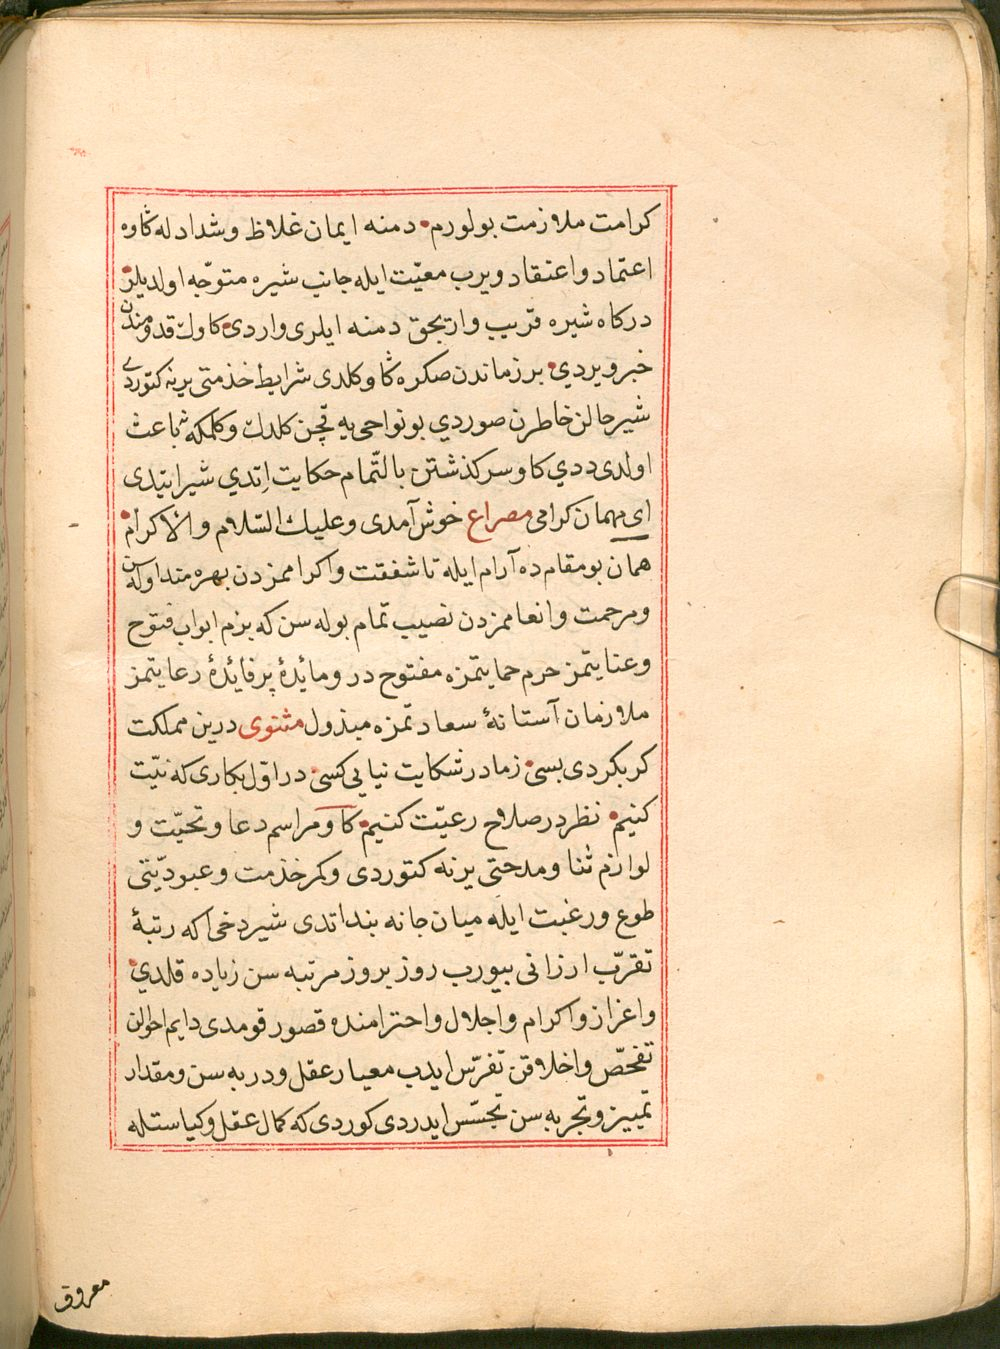 كرامت ملازمت بولورم • دمنه ايمان غلاظ وشداد له كاوه
اعتماد واعتقاد ويرب معيّت ايله جانب شيره متوجّه اولديلر •
دركاه شيره قريب وارىجق دمنه ايلرى واردى • كاوك قدومندن
خبر ويردي • بر زماندن صكره كاو كلدى شرايط خذمتى يرنه كتوردي
شير حالن خاطرن صوردي بو نواحى يه قچن كلدك وكلمكه باعث
اولدى ددي كاو سركذشتن بالتّمام حكايت اِتدي شير ايتدى
اى مهمان كرامى مصراع خوش آمدى وعليك السّلام والاكرام •
همان بو مقام ده آرام ايله تا شفقت واكراممزدن بهره مند اوله سن
ومرحمت وانعاممزدن نصيب تمام بوله سن كه بزم ابواب فتوح
وعنايتمز حرم حمايتمزه مفتوح در ومائدۀ پر فائدۀ رعايتمز
ملازمان آستانۀ سعادتمزه مبذول مثنوى درين مملكت
كر بكردى بسى • ز ما در شكايت نيابى كسى • در اوّل بكارى كه نيّت
كنيم • نظر در صلاح رعيّت كنيم • كاو مراسم دعا وتحيّت و
لوازم ثنا ومدحتى يرنه كتوردى وكمر خذمت وعبوديّتى
طوع ورغبت ايله ميان جانه بند اتدى شير دخى اكه رتبۀ
تقرّب ارزانى بيورب روز بروز مرتبه سن زياده قلدي •
واغراز واكرام واجلال واحترامنده قصور قومدى دايم احوالن
تفحّص واخلاقن تفرّس ايدب معيار عقل ودربه سن ومقدار
تمييز وتجربه سن تجسّس ايدردى كوردى كه كمال عقل وكياستله
معروف